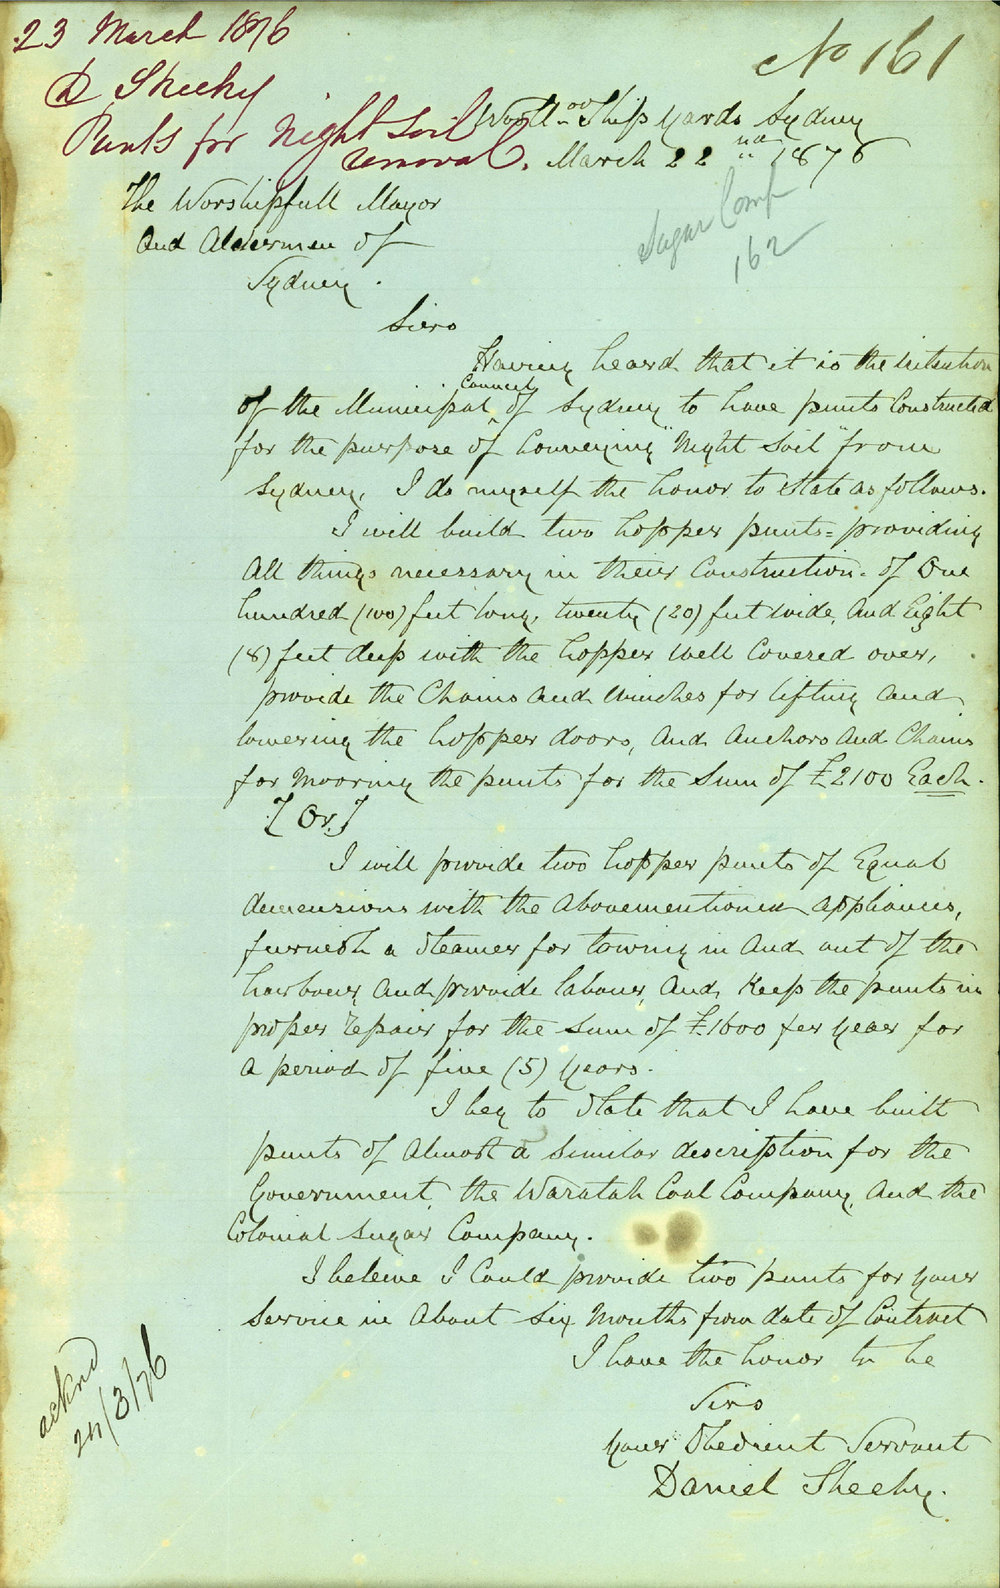 23 March 1876
D Sheehy
Punts for Night Soil
removal.
No 161
Ship Yards Sydney
March 22nd 1876
Sugar Comp
162
The Worshipfull Mayor
And Aldermen of
Sydney.
Sirs
Having heard that it is the intention
of the Municipal Council of Sydney to have punts Constructed
for the purpose of Conveying "Night Soil" from
Sydney, I do myself the honor to state as follows.
I will build two hopper punts = providing
All things necessary in their Construction. of One
hundred (100) feet long, twenty (20) feet wide, And Eight
(8) feet deep with the hopper well Covered over,
provide the Chains and winches for lifting and
lowering the hopper doors, And Anchors And Chains
for Mooring the punts for the Sum of £2100 Each.
[Or.]
I will provide two hopper punts of Equal
demensions with the Abovementioned Appliances,
furnish a Steamer for towing in And out of the
harbour, And provide labour And Keep the punts in
proper repair for the Sum of £1600 per year for
a period of five (5) Years.
I beg to State that I have built
punts of Almost a Similar description for the
Government, the Waratah Coal Company, And the
Colonial Sugar Company.
I beleive I Could provide two punts for your
Service in About Six Months from date of Contract
I have the honor to be
Sirs
Your Obedient Servant
Daniel Sheehy.
acknd
24/3/76